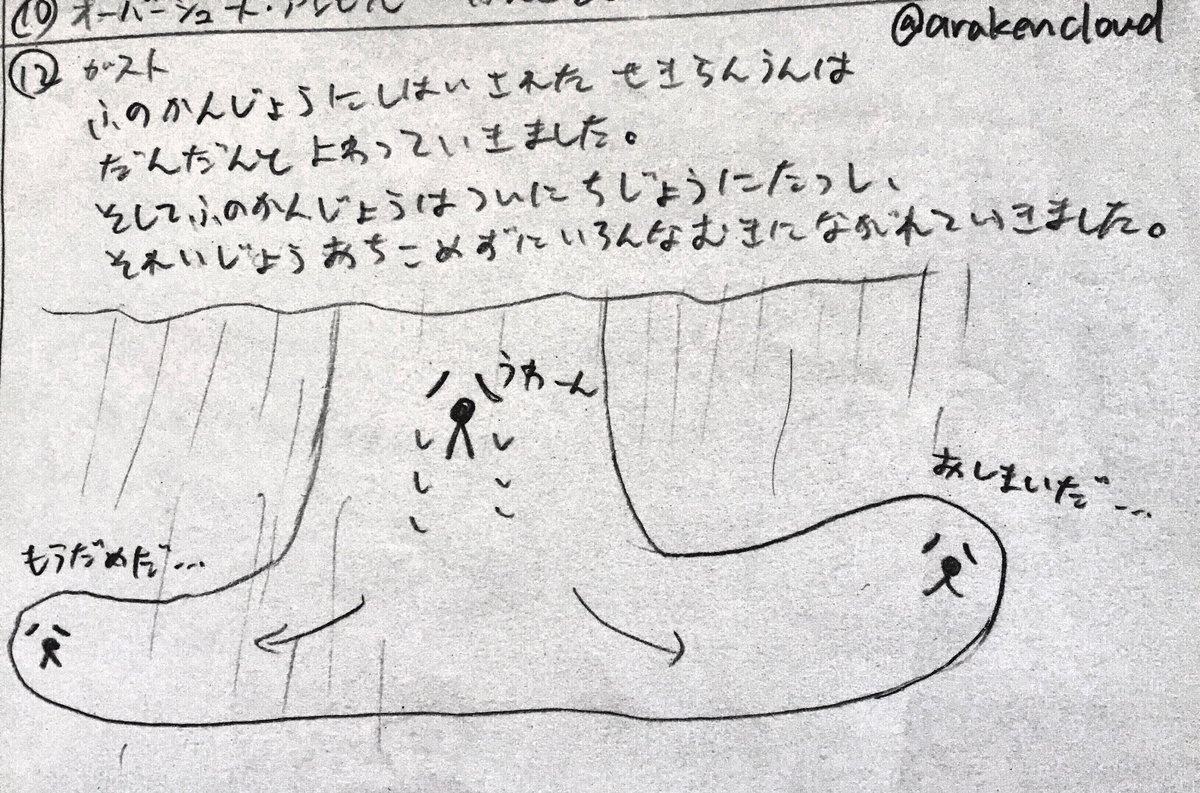 ⑩ オーバーシュート・
@arakencloud
⑫ ガスト
ふのかんじょうにしはいされた せきらんうんは
だんだんと よわっていきました。
そしてふのかんじょうはついにちじょうにたっし、
それいじょうおちこめずにいろんなむきにながれていきました。
うわーん
おしまいだ…
もうだめだ…